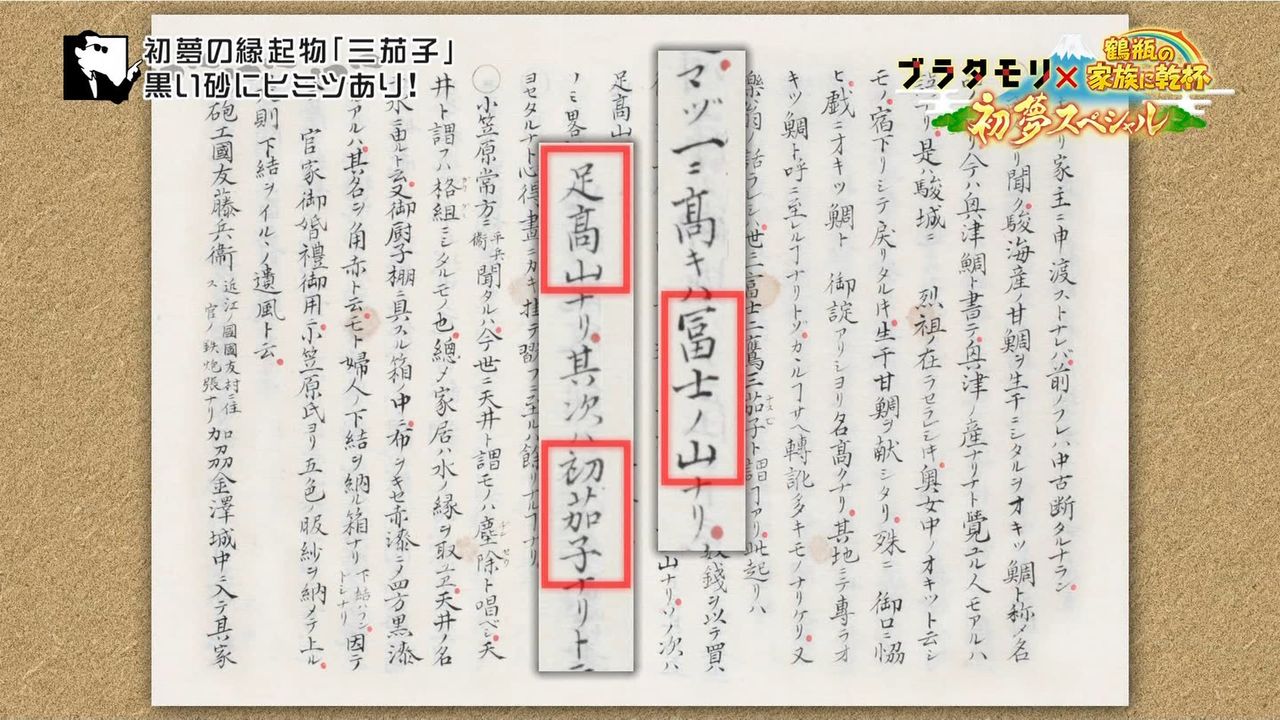 初夢の縁起物「三茄子」
黒い砂にヒミツあり!
ブラタモリ×
鶴瓶の
家族に乾杯
初夢スペシャル
マヅ一ニ高キハ冨士ノ山ナリ
足高山ナリ其次ハ初茄子ナリト
リ家主ニ申渡ストナレバ前ノフレハ中古断タルナラン
リ聞ノ駿海産ノ甘鯛ヲ生干ニシタルヲオキツ鯛ト称メ名
リ今ハ興津鯛ト書テ興津ノ産ナリナト覺ユル人モアルハ
リ是ハ駿城ニ 烈祖ノ在ラセラレシ奥女中ノオキツト云シ
モノ宿下リシテ戻リタル生干甘鯛ヲ献シタリ殊ニ御口ニ恊
ヒ戯ニオキツ鯛ト 御諚アリシヨリ名高ノナリ其地ニテ専ラオ
キツ鯛ト呼ニ至レルナリトゾカカルサヘ轉訛多キモノナリケリ又
樂翁ノ話ラレシハ世ニ一冨士二鷹三茄子ト謂アリ此起リハ
銭ヲ以テ買
山ナリソノ次ハ
足高山
ノミ畧
ヨセタルナト心得畫ニカキ掛テ翫フニ至ルハ餘リナル
〇小笠原常方平兵衛聞タルハ今世ニ天井ト謂モノハ塵除ト唱ベシ天
井ト謂フハ格組ニシタルモノ也總メ家居ハ水ノ縁ヲ取ユヱ天井ノ名
水ニ由ルト云又御厨子棚ニ具スル箱ノ中ニ布ヲキセ赤漆ニテ四方黒漆
アルハ其名ヲ角赤ト云モト婦人ノ下結ヲ納ル箱ナリ因テ
官家御婚禮御用ニ小笠原氏ヨリ五色ノ服紗ヲ納メテ上ル
則下結ヲイルヽノ遺風ト云
砲工國友藤兵衛近江ノ國國友村ニ住ス官ノ鉄炮張ナリ加州金澤城中ニ入テ其家